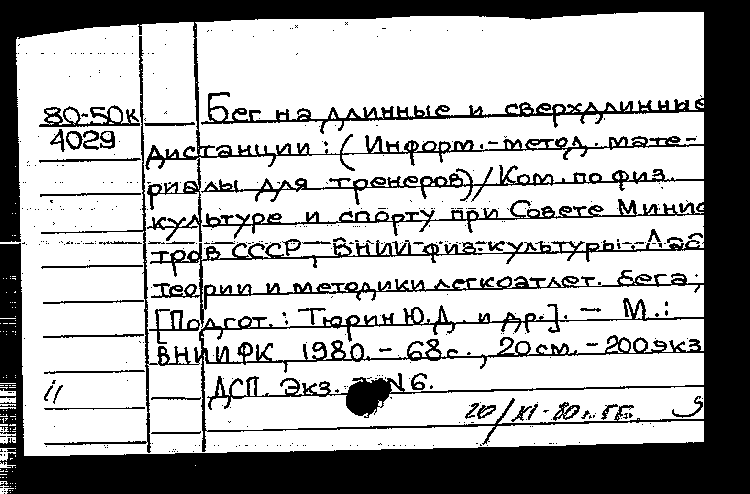 80-50к
4029
Бег на длинные и сверхдлинные
дистанции : ( Информ.-метод. мате-
риалы для тренеров) / Ком. по физ.
культуре и спорту при Совете Минис
тров СССР, ВНИИ физ. культуры. Лаб
теории и методики легкоатлет. бега;
[Подгот. : Тюрин Ю.Д. и др.]. — М. :
ВНИИФК, 1980. - 68 с., 20 см. - 200 экз
ДСП. Экз. N 6.
11
20/XI-80 г.